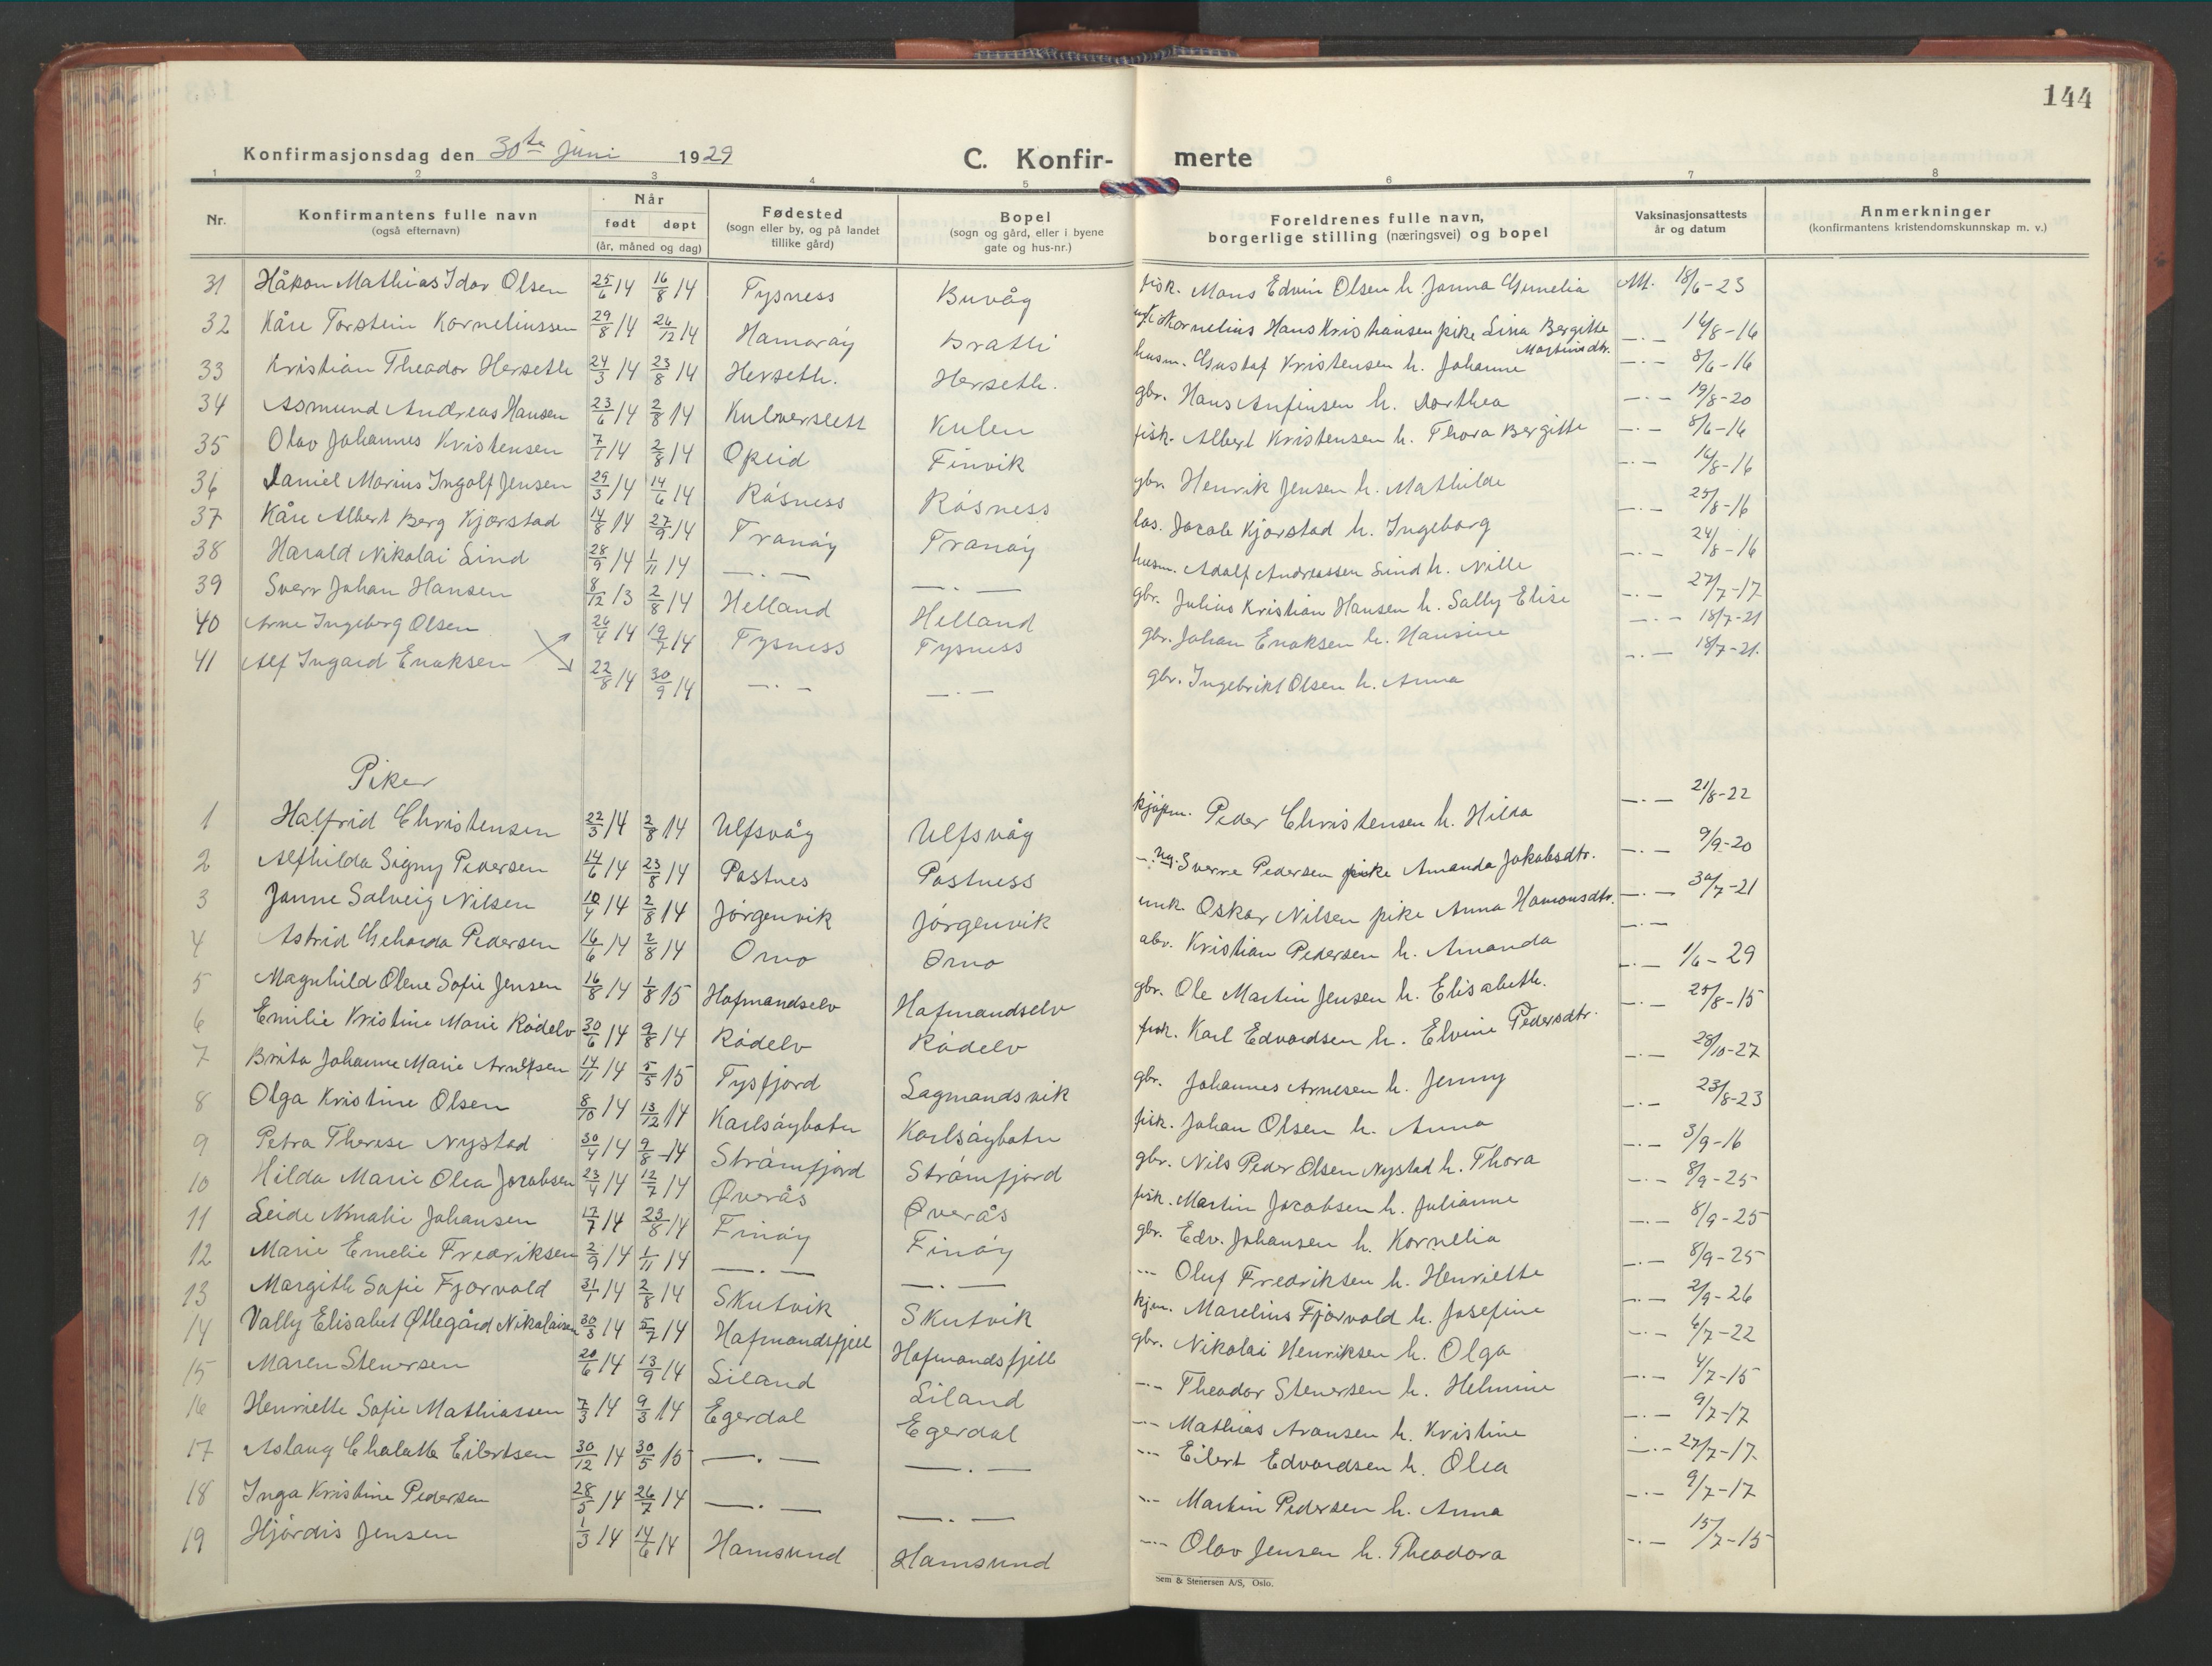 144
Konfirmasjonsdag den 30te juni 1929
C. Konfir- merte
1 2 3 4 5 6 7 8
Nr. Konfirmantens fulle navn (også efternavn) Når født døpt (år, måned og dag) Fødested (sogn eller by, og på landet tillike gård) Bopel (sogn og gård, eller i byene gate og hus-nr.) Foreldrenes fulle navn, borgerlige stilling (næringsvei) og bopel Vaksinasjonsattests år og datum Anmerkninger (konfirmantens kristendomskunnskap m. v.)
31 Håkon Mathias Idar Olsen 25/6 14 16/8 14 Tysness Buvåg fisk. Mons Edvin Olsen h. Janna Cornelia Att. 18/6-23
32 Kåre Torstein Korneliussen 29/8 14 26/12 14 Hamarøy Bratli Kornelius Hans Kristiansen pike Lina Bergitte Martinsdtr. —.— 16/8-16
33 Kristian Theodor Herseth 24/3 14 23/8 14 Herseth. Herseth. husm. Gustaf Kristensen h. Johanne —.— 8/6-16
34 Asmund Andreas Hansen 23/6 14 2/8 14 Kulen gbr. Hans Anfinsen h. Dorthea —.— 19/8-20
35 Olav Johannes Kristensen 7/7 14 2/8 14 Opeid Finvik fisk. Albert Kristensen h. Thora Bergitte —.— 8/6-16
36 Daniel Marius Ingolf Jensen 29/3 14 14/6 14 Råsness Råsness gbr. Henrik Jensen h. Mathilde —.— 16/8-16
37 Kåre Albert Berg Kjørstad 14/8 14 27/9 14 Tranøy Tranøy los. Jacob Kjørstad h. Ingeborg —.— 25/8-16
38 Harald Nikolai Lind 28/9 14 1/11 14 —.— —.— husm. Adolf Andreassen Lind h. Nille —.— 24/8-16
39 Sverr Johan Hansen 8/12 13 2/8 14 Helland Helland gbr. Julius Kristian Hansen h. Sally Elise —.— 27/7-17
40 Arne Ingeberg Olsen 26/4 14 19/7 14 Tysness Tysness gbr. Johan Enoksen h. Hansine —.— 18/7-21
41 Alf Ingard Enoksen 22/8 14 30/9 14 —.— —.— gbr. Ingebrikt Olsen h. Anna —.— 18/7-21.
Piker
1 Halfrid Christensen 22/3 14 2/8 14 Ulfsvåg Ulfsvåg kjøpm. Peder Christensen h. Hilda —.— 21/8-22
2 Alfhilda Signy Pedersen 14/6 14 23/8 14 Postnes Postness ug. Sverre Pedersen pike Amanda Jakobsdtr. —.— 9/9-20
3 Janne Solveig Nilsen 10/4 14 2/8 14 Jørgenvik Jørgenvik unk. Oskar Nilsen pike Anna Hamonsdtr. —.— 30/7-21
4 Astrid Geharda Pedersen 16/6 14 2/8 14 Ørno Ørno abr. Kristian Pedersen h. Amanda —.—
5 Magnhild Olene Sofie Jensen 16/8 14 1/8 15 Hofmandselv Hofmandselv gbr. Ole Martin Jensen h. Elisabeth. —.— 1/6-29
6 Emilie Kristine Marie Rødelv 30/6 14 9/8 14 Rødelv Rødelv fisk. Karl Edvardsen h. Elvine Pedersdtr. —.— 25/8-15
7 Brita Johanne Marie Arnesen 14/11 14 5/5 15 Tysfjord Lagmandsvik gbr. Johannes Arnesen h. Jenny —.— 28/10-27
8 Olga Kristine Olsen 8/10 14 13/12 14 Karlsøybotn Karlsøybotn fisk. Johan Olsen h. Anna —.— 23/8-23
9 Petra Therese Nystad 30/4 14 9/8-14 Strømfjord Strømfjord gbr. Nils Peder Olsen Nystad h. Thora —.— 3/9-16
10 Hilda Marie Olea Jacobsen 23/4 14 12/7 14 Øverås Øverås fisk. Martin Jacobsen h. Julianne —.— 8/9-25
11 Leide Amalie Johansen 17/7 14 23/8 14 Finøy Finøy gbr. Edv. Johansen h. Kornelia —.— 8/9-25
12 Marie Emelie Fredriksen 2/9 14 1/11 14 —.— —.— Oluf Fredriksen h. Henriette —.— 8/9-25
13 Margith Sofie Fjorvold 31/1 14 2/8 14 Skutvik Skutvik kjm. Marelius Fjorvold h. Josefine —.— 2/9-26
14 Vally Elisabet Øllegård Nikolaisen 30/3 14 5/7 14 Hofmandsfjell Hofmandsfjell gbr. Nikolai Henriksen h. Olga —.— 6/7-22
15 Maren Stenersen 20/6 14 13/9 14 Liland Liland —.— Theodor Stenersen h. Helmine —.— 4/7-15
16 Henriette Sofie Mathiassen 7/3 14 9/3 14 Egerdal Egerdal —.— Mathias Aronsen h. Kristine —.— 9/7-17
17 Aslaug Chalotte Eilertsen 30/12 14 30/5 15 —.— —.— Eilert Edvardsen h. Olea —.— 27/7-17
18 Inga Kristine Pedersen 28/5 14 26/7 14 —.— —.— Martin Pedersen h. Anna —.— 9/7-17
19 Hjørdis Jensen 1/3 14 14/6 14 Hamsund Hamsund —.— Olav Jensen h. Theodora —.— 15/7-15
Sem & Stenersen A/S, Oslo.